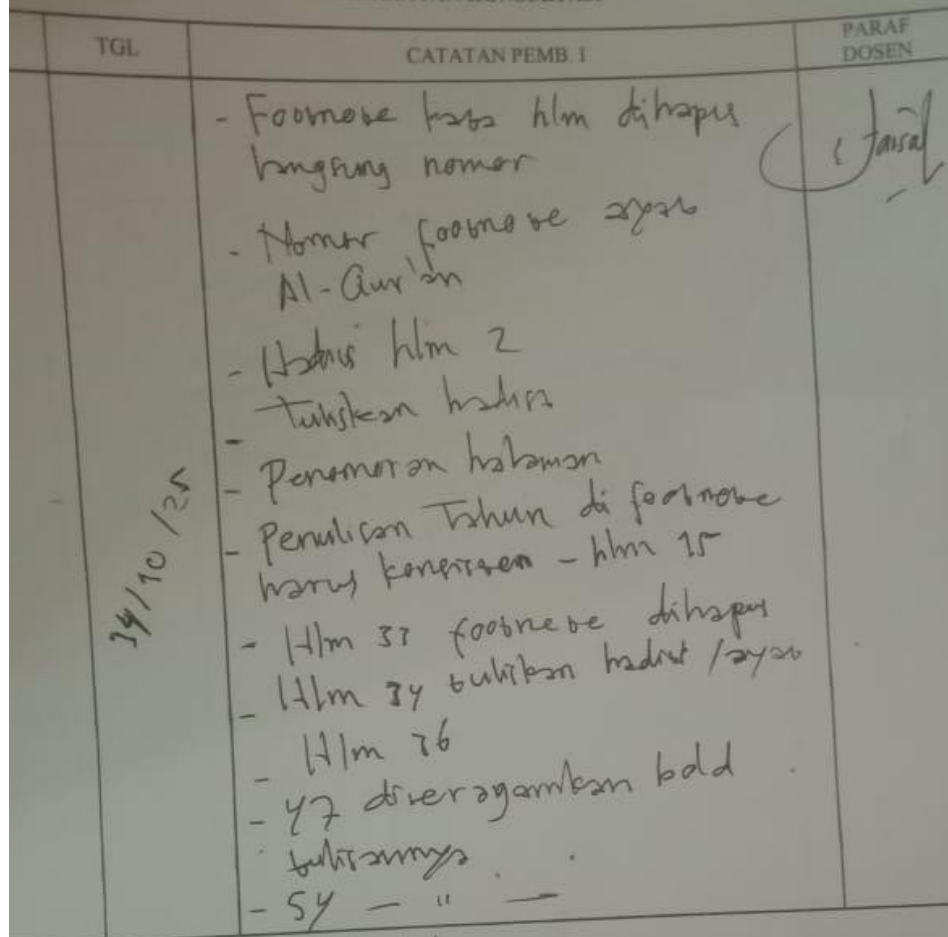 TGL
CATATAN PEMB. I
PARAF
DOSEN
- Footnote kata hlm dihapus
langsung nomor
- Nomor footnote ayat
Al-Qur'an
- Hadis hlm 2
- Tuliskan hadist
- Penomoran halaman
- Penulisan Tahun di footnote
harus konsisten - hlm 15
- Hlm 33 footnote dihapus
- Hlm 34 tulikan hadist / ayat
- Hlm 36
- 47 diseragamkan bold
tulisannya
- 54 — " —
/10/25
faisal